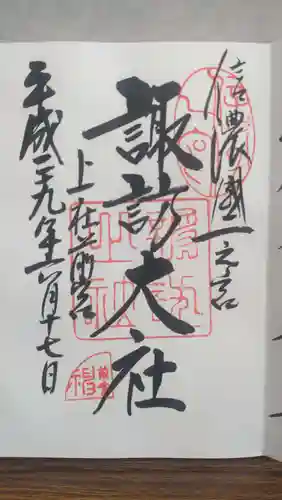 信濃國一之宮
諏訪大社
上社前宮
平成二九年六月十七日